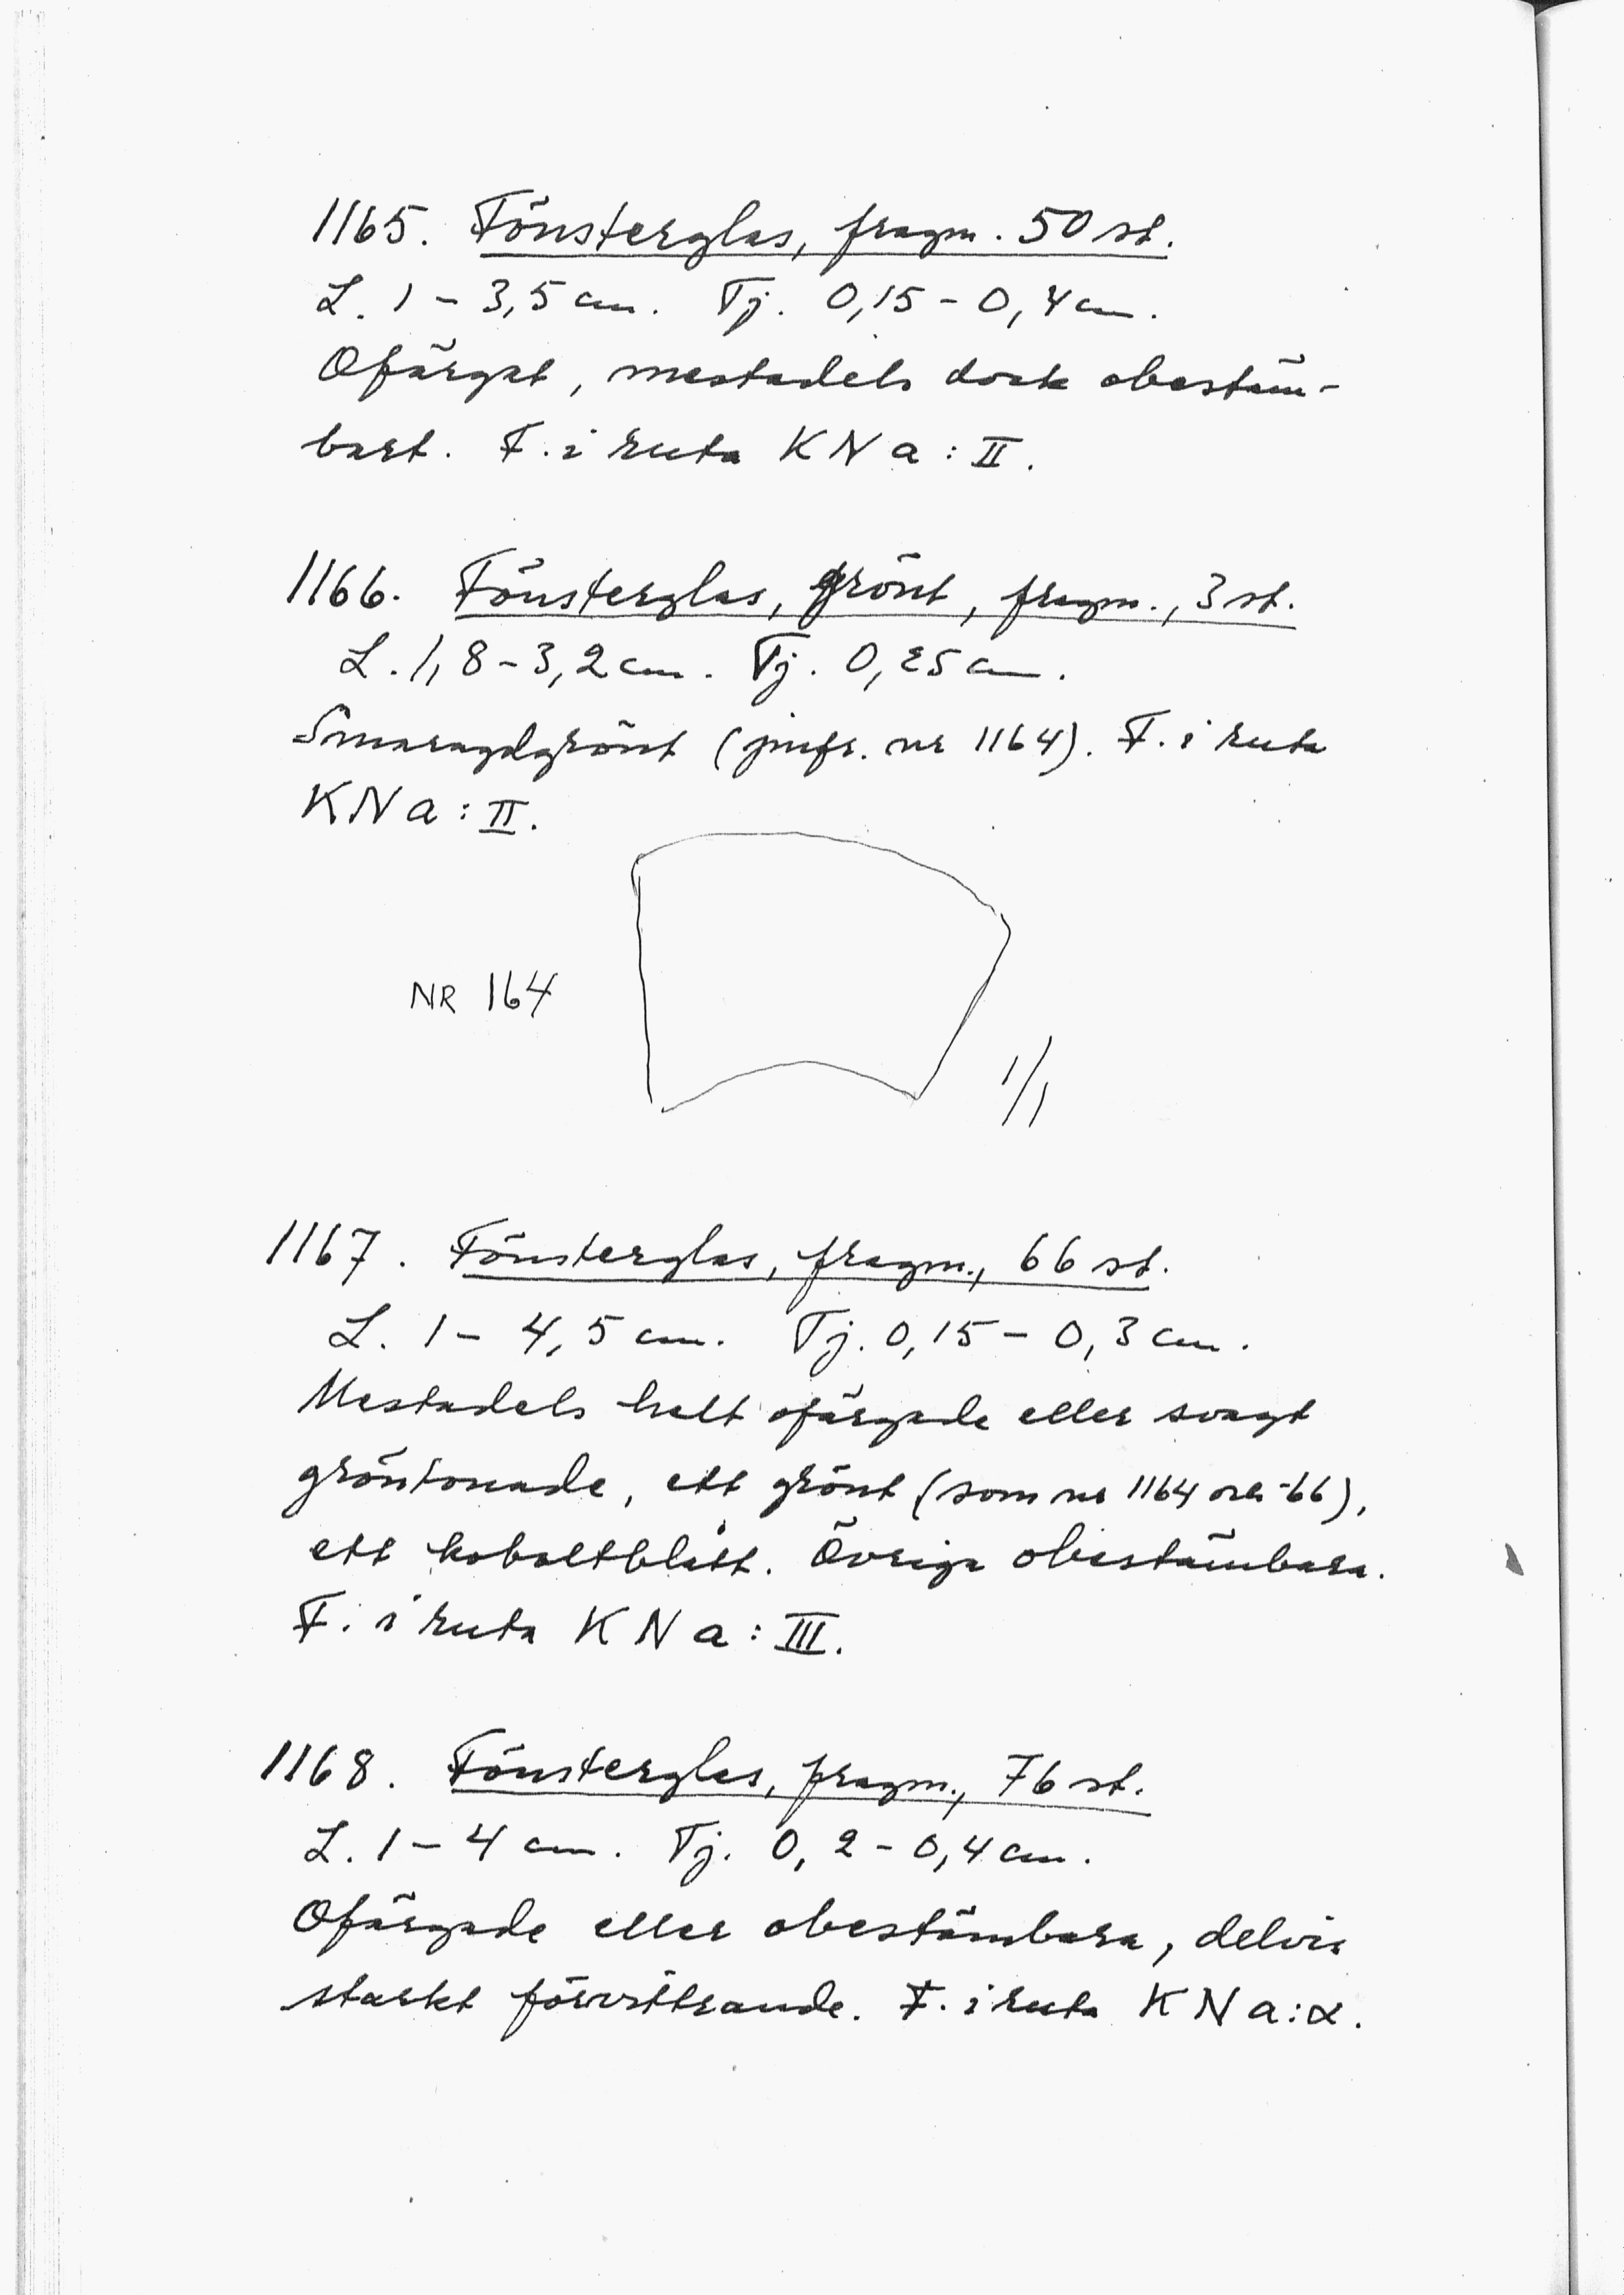 1165. Fönsterglas, fragm. 50 st.
L. 1 - 3,5 cm. Tj. 0,15 - 0,4 cm.
Ofärgat, mestadels dock obestäm-
bart. F. i ruta KN a : II.
1166. Fönsterglas, grönt, fragm., 3 st.
L. 1,8 - 3,2 cm. Tj. 0,25 cm.
Smaragdgrönt (jmfr. nr 1164). F. i ruta
KN a : II.
NR 164
1/1
1167. Fönsterglas, fragm., 66 st.
L. 1 - 4,5 cm. Tj. 0,15 - 0,3 cm.
Mestadels helt ofärgade eller svagt
gröntonade, ett grönt (som nr 1164 och -66),
ett koboltblått. Övriga obestämbara.
F. i ruta KN a : III.
1168. Fönsterglas, fragm., 76 st.
L. 1 - 4 cm. Tj. 0,2 - 0,4 cm.
Ofärgade eller obestämbara, delvis
starkt förvittrande. F. i ruta KN a : α.